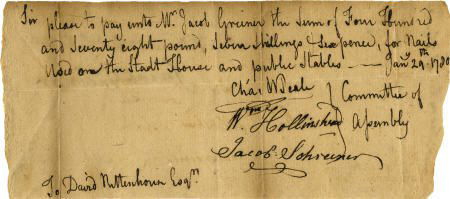 Sir please to pay unto Mr. Jacob Greiner the Sum of Four Hundred
and Seventy eight pound, Seven Shillings & Six pence, for Nails
Used on the Stadt House and public Stables — Jany 29th 1780
Chas W Peale
Wm Hollinshead } Committee of
Jacob Schreiner Assembly
To David Rittenhouse Esqr.